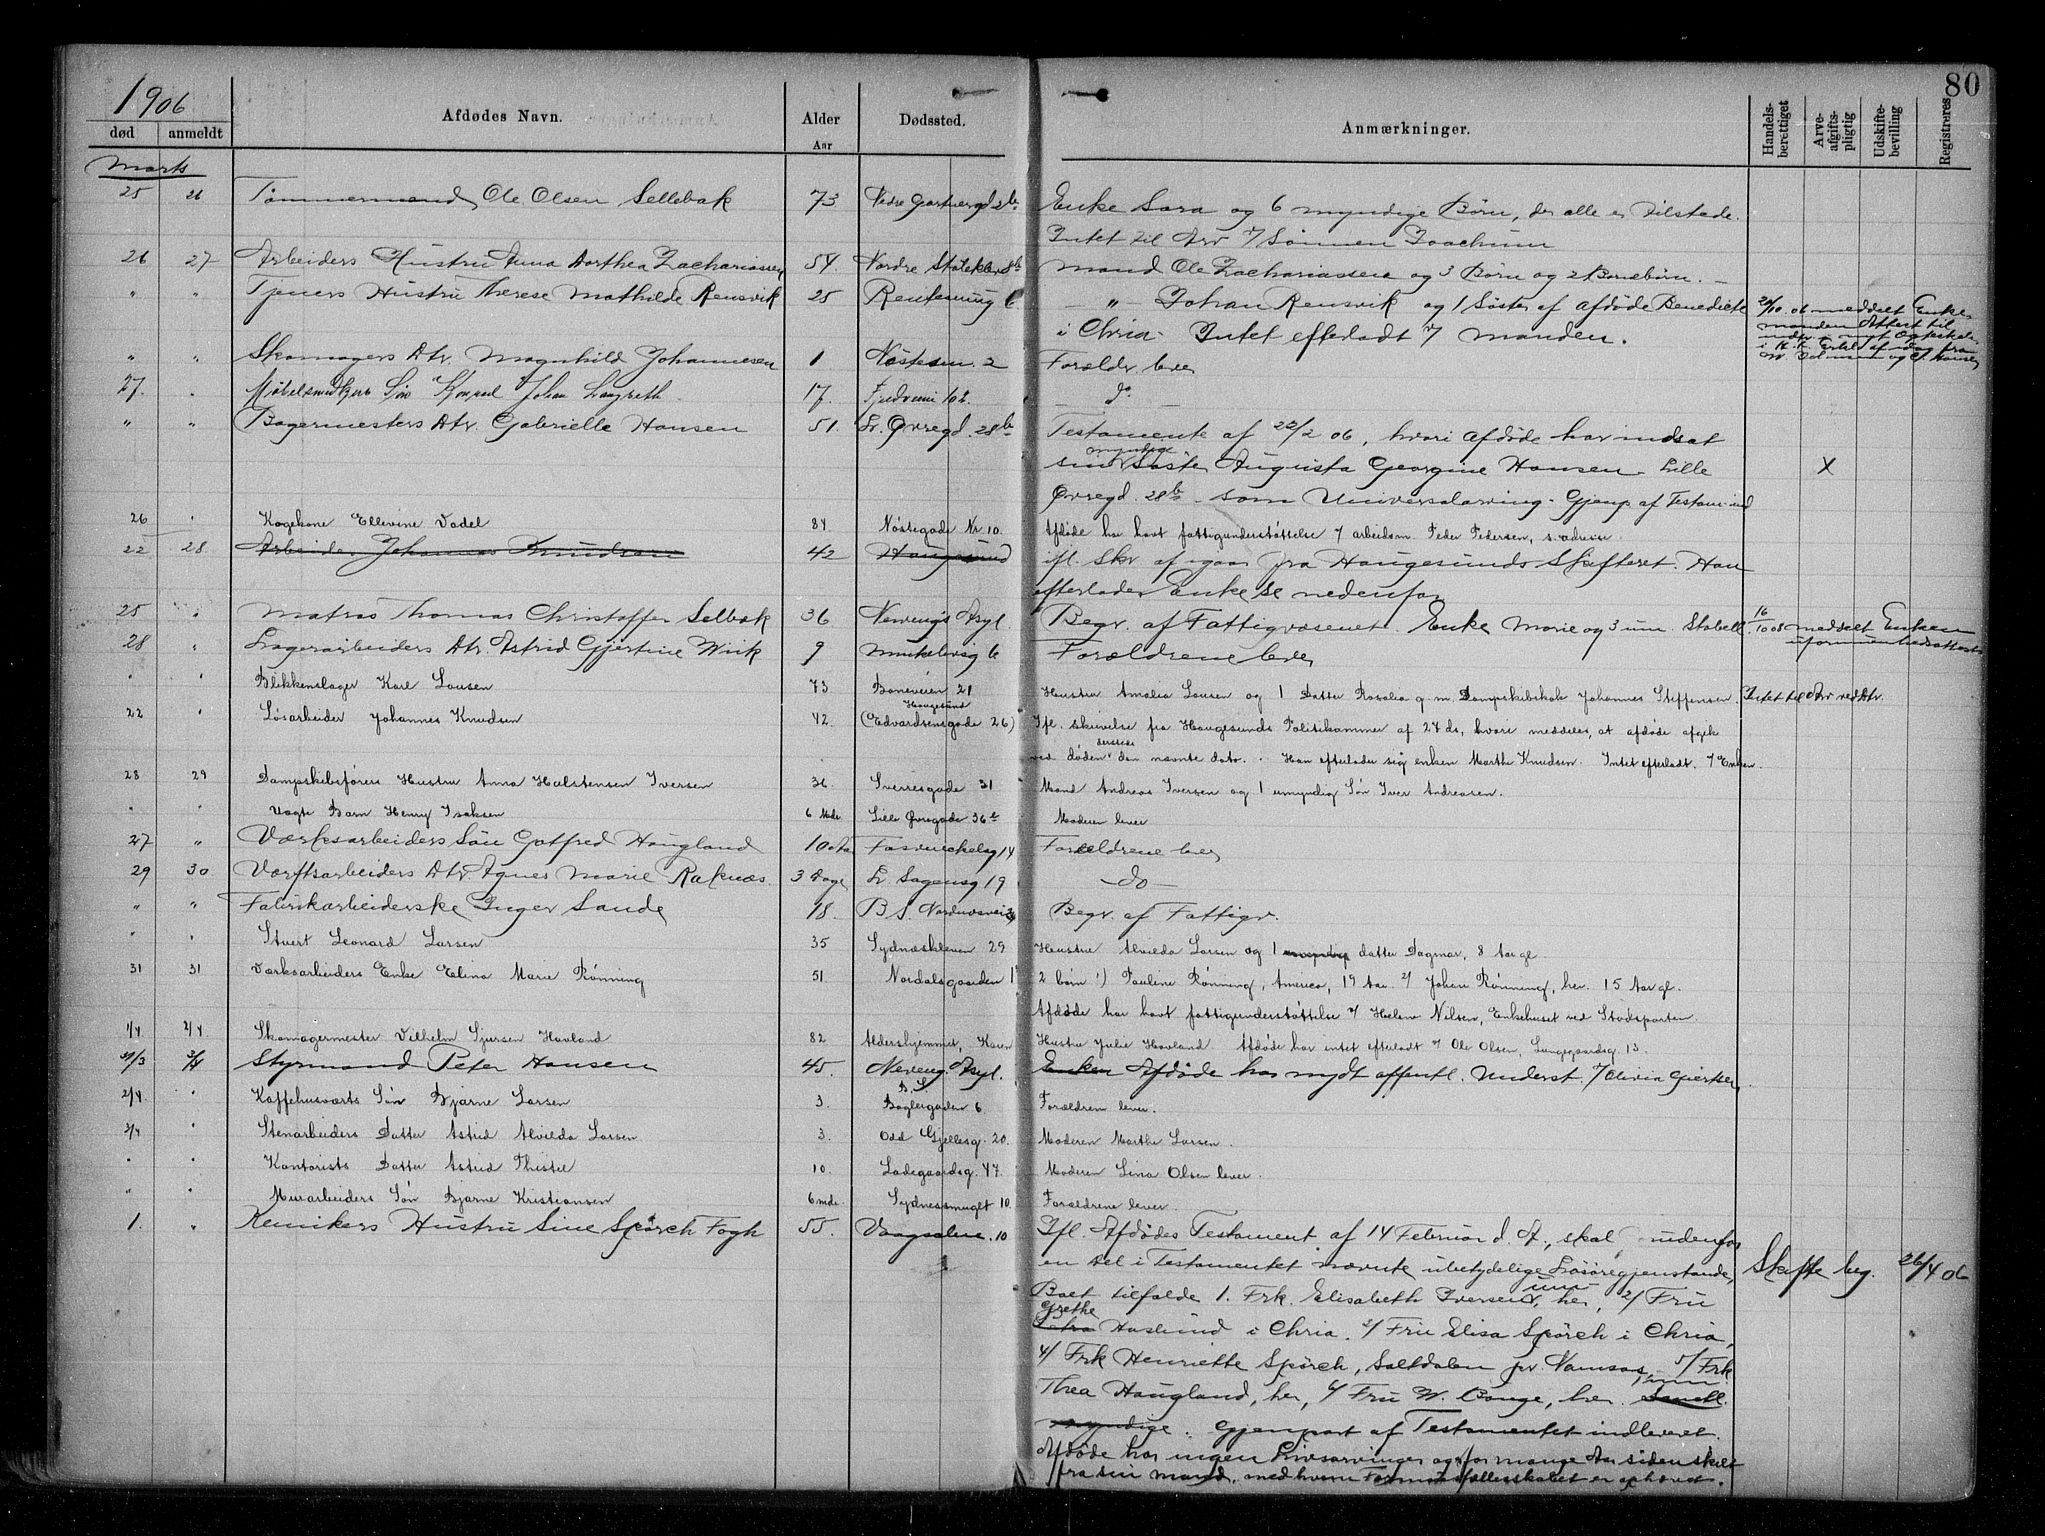 80
1906
død anmeldt Afdødes Navn. Alder Aar Dødssted. Anmærkninger. Handels-berettiget Arve-afgifts-pligtig Udskifte-bevilling Registreres
Marts
25 26 Tømmermand Ole Olsen Sellebak 73 Nedre Enke Sara og 6 myndige Børn, der alle er tilstede.
Intet til Arv Sønnen Joachum
26 27 Arbeiders Hustru Anna Dorthea Zachariassen 54. Nordre Mand Ole Zachariassen og 3 Børn og 2 Børnebørn. —
" " Tjeners Hustru Therese Mathilde Rensvik 25 — " — Johan Rensvik og 1 Søster af afdøde Benedicte
i Chria. Intet efterladt Manden.
20/10 06 meddelt Enke-
manden Attest til
" " Skomagers Dtr. Magnhild Johannesen 1 Nøstesm. 2 Forældr. lever
27. " Søn Konrad Johan 17. do
" " Bagermesters Dtr. Gabrielle Hansen 51. Lr. Øvregd. 28b Testamente af 22/2 06, hvori afdøde har indsat
sin myndige Søster Augusta Georgine Hansen Lille X
Øvregd. 28b som Universalarving. Gjenp. af Testam. ind
26 " Kogekone Ellevine Vadel 84 Nøstegade Nr. 10. Afdøde har havt fattigunderstøttelse arbeidsm. Peder Pedersen, s. adresse
22 28 Arbeider Johannes Knudsen 42 Haugesund ifl. Skr. af igaar fra Haugesunds Skifteret. Han
efterlader Enke se nedenfor
25 " Matros Thomas Christoffer Selbak 36 Nevengs Asyl. Begr. af Fattigvæsenet. Enke Marie og 3 um. 16/10 08 meddelt Enken
28 " Lagerarbeiders Dtr. Astrid Gjertine Wiik 9 Forældrene lever
" " Blikkenslager Karl Lousen 73 Baneveien 21 Hustru Amalia Lousen og 1 Datter Rosalia g. m. Dampskibskok Johannes Steffensen. Intet til Arv ved Dtr.
22 " Løsarbeider Johannes Knudsen 42 Haugesund (Edvardsensgade 26) Ifl. skrivelse fra Haugesunds Politikammer af 27 ds, hvori meddeles, at afdøde afgik
ved døden dersteds den nævnte dato. Han efterlader sig enken Marthe Knudsen. Intet efterladt. Enken.
28 29 Dampskibsførers Hustru Anna Halstensen Iversen 36 Sverresgade 31 Mand Andreas Iversen og 1 umyndig Søn Iver Andreasen.
" " Uægte Barn Henry Isaksen 6 Mdr. Lille Øvregade 36b Moderen lever
27 " Værksarbeiders Søn Gotfred Haugland 10 Forældrene lever
29 30 Værftsarbeiders Dtr. Agnes Marie Raknæs. 3 Dage Lr. Sagensg 19 — do —
" " Fabrikarbeiderske Inger Sande 18. B S. Begr. af Fattigv.
" " Stuert Leonard Larsen 35 Sydnæskleven 29 Hustru Alvilda Larsen og 1 umyndig datter Dagmar, 8 Aar gl.
31 31 Værksarbeiders Enke Elina Marie Rønning 51 Nordalsgaarden 1 2 børn 1) Pauline Rønning, America, 19 Aar. 2/ Johan Rønning, her. 15 Aar gl.
Afdøde har havt fattigunderstøttelse Helene Nilsen, Enkehuset ved Stadsporten
1/4 2/4 Skomagermester Vilhelm Sjursen Havland 82 Aldershjemmet, Hustru Julie Havland Afdøde har intet efterladt Ole Olsen, Lungegaardsg. 13.
30/3 3/4 Styrmand Peter Hansen 45. Neveng. Asyl. Enken Afdøde har nydt offentl. Underst. Olivia Giertsen.
2/4 " Kaffehusværts Søn Bjarne Larsen 3. B. S. Baglergaden 6 Forældrene lever.
3/4 " Stenarbeiders Datter Astrid Alvilda Larsen 3. Odd Gjellesg. 20. Moderen Marthe Larsen.
" " Kontorists Datter Astrid Thistel 10. Ladegaardsg. 47. Moderen Lina Olsen lever.
" " Murarbeiders Søn Bjarne Kristiansen 6 mdr. Sydnessmuget 10. Forældrene lever.
1. " Kemikers Hustru Sine Spørck Fogh 55. 10 Ifl. Afdødes Testament af 14 Februar d. A., skal udenfor
en Del i Testamentet nævnte ubetydelige Løsøregjenstande, Skifte beg. 26/4 06
Boet tilfalde 1. Frk. Elisabeth Iversen, her, 2/ Fru
Grethe Haslund i Chria. 3/ Fru Elisa Spørck i Chria,
4/ Frk Henriette Spørck, Saltdalen pr. Namsos, 5/ Frk
Thea Haugland, her, 6/ Fru W. Bange, her. Samtl.
myndige. Gjenpart af Testamentet indleveret.
Afdøde har ingen Livsarvinger og for mange Aar siden skilt
fra sin mand, med hvem Formuesfællesskabet er ophævet.